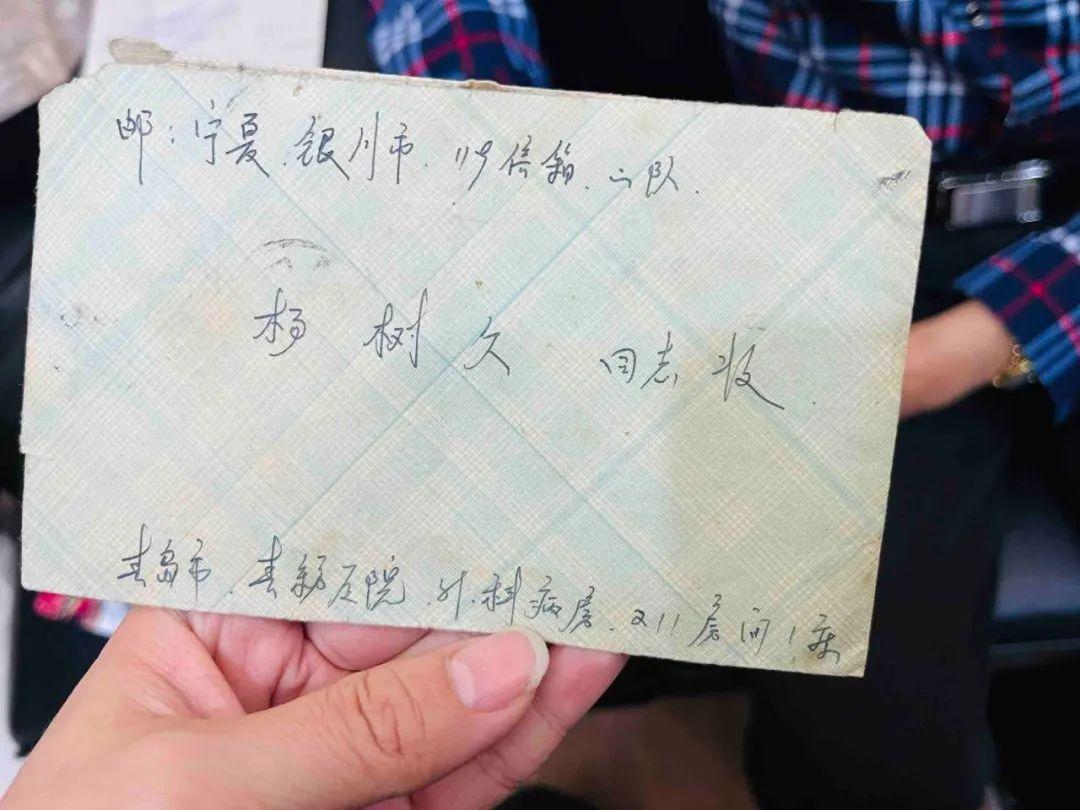 邮:宁夏.银川市.119信箱.二队.
杨树久 同志收.
青岛市.青纺医院.外科病房.211房间1床